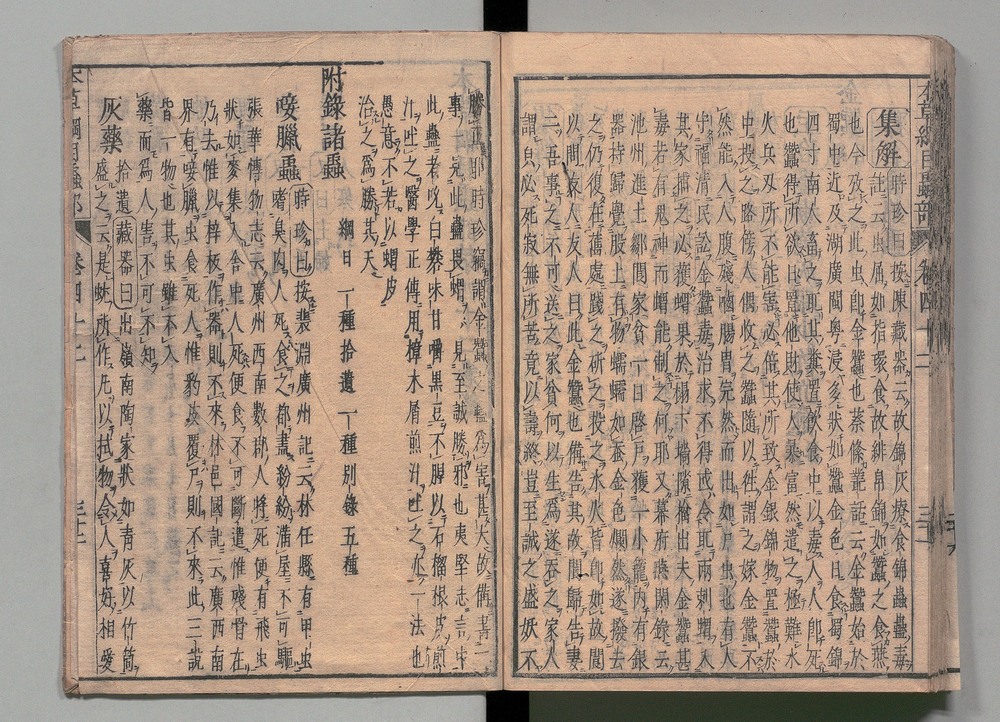 本草綱目蟲部 卷四十二
集解 時珍曰按陳藏器云故錦灰療食錦蟲蠱毒
註云虫屬如指環食故緋帛錦如蠶之食葉
也今攷之此虫即金蠶也蔡絛叢話云金蠶始於
蜀中近及湖廣閩粤浸多狀如蠶金色日食蜀錦
四寸南人畜之取其糞置飲食中以毒人人即死
也蠶得所欲日置他財使人暴富然遣之極難水
火兵刃所不能害必倍其所致金銀錦物置蠶於
中投之路傍人偶收之蠶隨以往謂之嫁金蠶不
然能入人腹殘囓腸胃完然而出如尸虫也有人
守福清民訟金蠶毒治求不得或令取兩刺蝟入
其家捕之必獲蝟果於榻下墻隙擒出夫金蠶甚
毒若有鬼神而蝟能制之何耶又幕府燕閑錄云
池州進士鄒閬家貧一日啓戶獲一小籠內有銀
器持歸覺股上有物蠕蠕如蚕金色爛然遂撥去
之仍復在舊處踐之斫之投之水火皆即如故閬
以問友人友人曰此金蠶也備告其故閬歸告妻
云吾事之不可送之家貧何以生爲遂吞之家人
謂其必死寂無所苦竟以壽終豈至誠之盛妖不
勝正耶時珍竊謂金蠶之蠱爲害甚大故備書二
事一見此蠱畏蝟一見至誠勝邪也夷堅志言中
此蠱者吮白礬味甘嚼黑豆不腥以石榴根皮煎
汁吐之醫學正傳用樟木屑煎汁吐之亦一法也
愚意不若以蝟皮
治之爲勝其天
附錄諸蟲 綱目一種拾遺一種別錄五種
唼臘蟲 時珍曰按裴淵廣州記云林任縣有甲虫
嗜臭肉人死食之都盡紛紛滿屋不可驅
張華博物志云廣州西南數郡人將死便有飛虫
狀如麥集入舍中人死便食不可斷遣惟殘骨在
乃去惟以梓板作器則不來林邑國記云廣西南
界有唼臘虫食死人惟豹皮覆尸則不來此三說
皆一物也其虫雖不入
藥而爲人害不可不知
灰藥 拾遺藏器曰出嶺南陶家狀如青灰以竹筒
盛之云是蚘所作凡以拭物令人喜好相愛
本草綱目蟲部 卷四十二